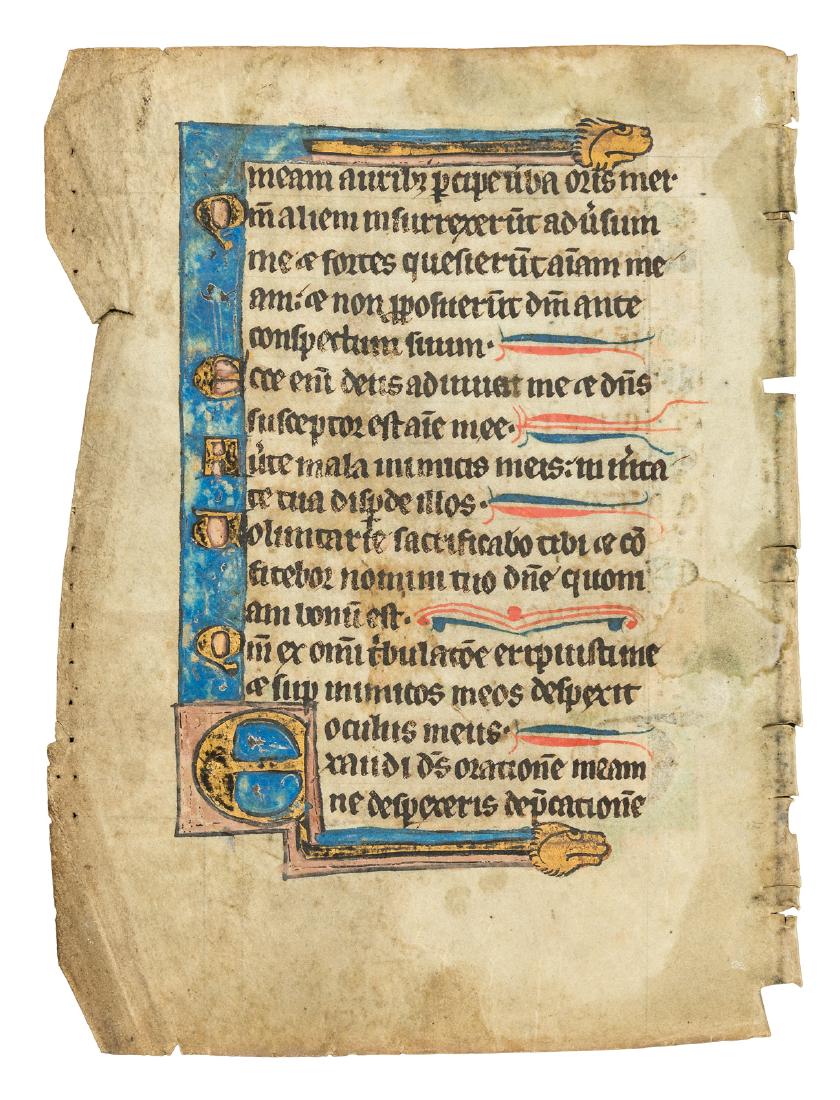 meam aurib₃ ꝑcipe ũba oris mei·
Qm̃ alieni insurrexer̃ut aduͥsum
me ⁊ fortes quesier̃ut aĩam me
am: ⁊ non ꝓposuer̃ut dm̃ ante
conspectum suum·
Ecce eni͂ deus adiuuat me ⁊ dñs
susceptor est aĩe mee·
Auͥte mala inimicis meis: in uͥita
te tua dispͥde illos·
Uoluntarie sacrificabo tibi ⁊ cõ
fitebor nomini tuo dñe quoni
am bonũ est·
Qm̃ ex omi͂ tͥbulatõe eripuisti me
⁊ sup inimicos meos despexit
oculus meus·
Exaudi dͦs orationẽ meam
ne despexeris dep̃cationẽ